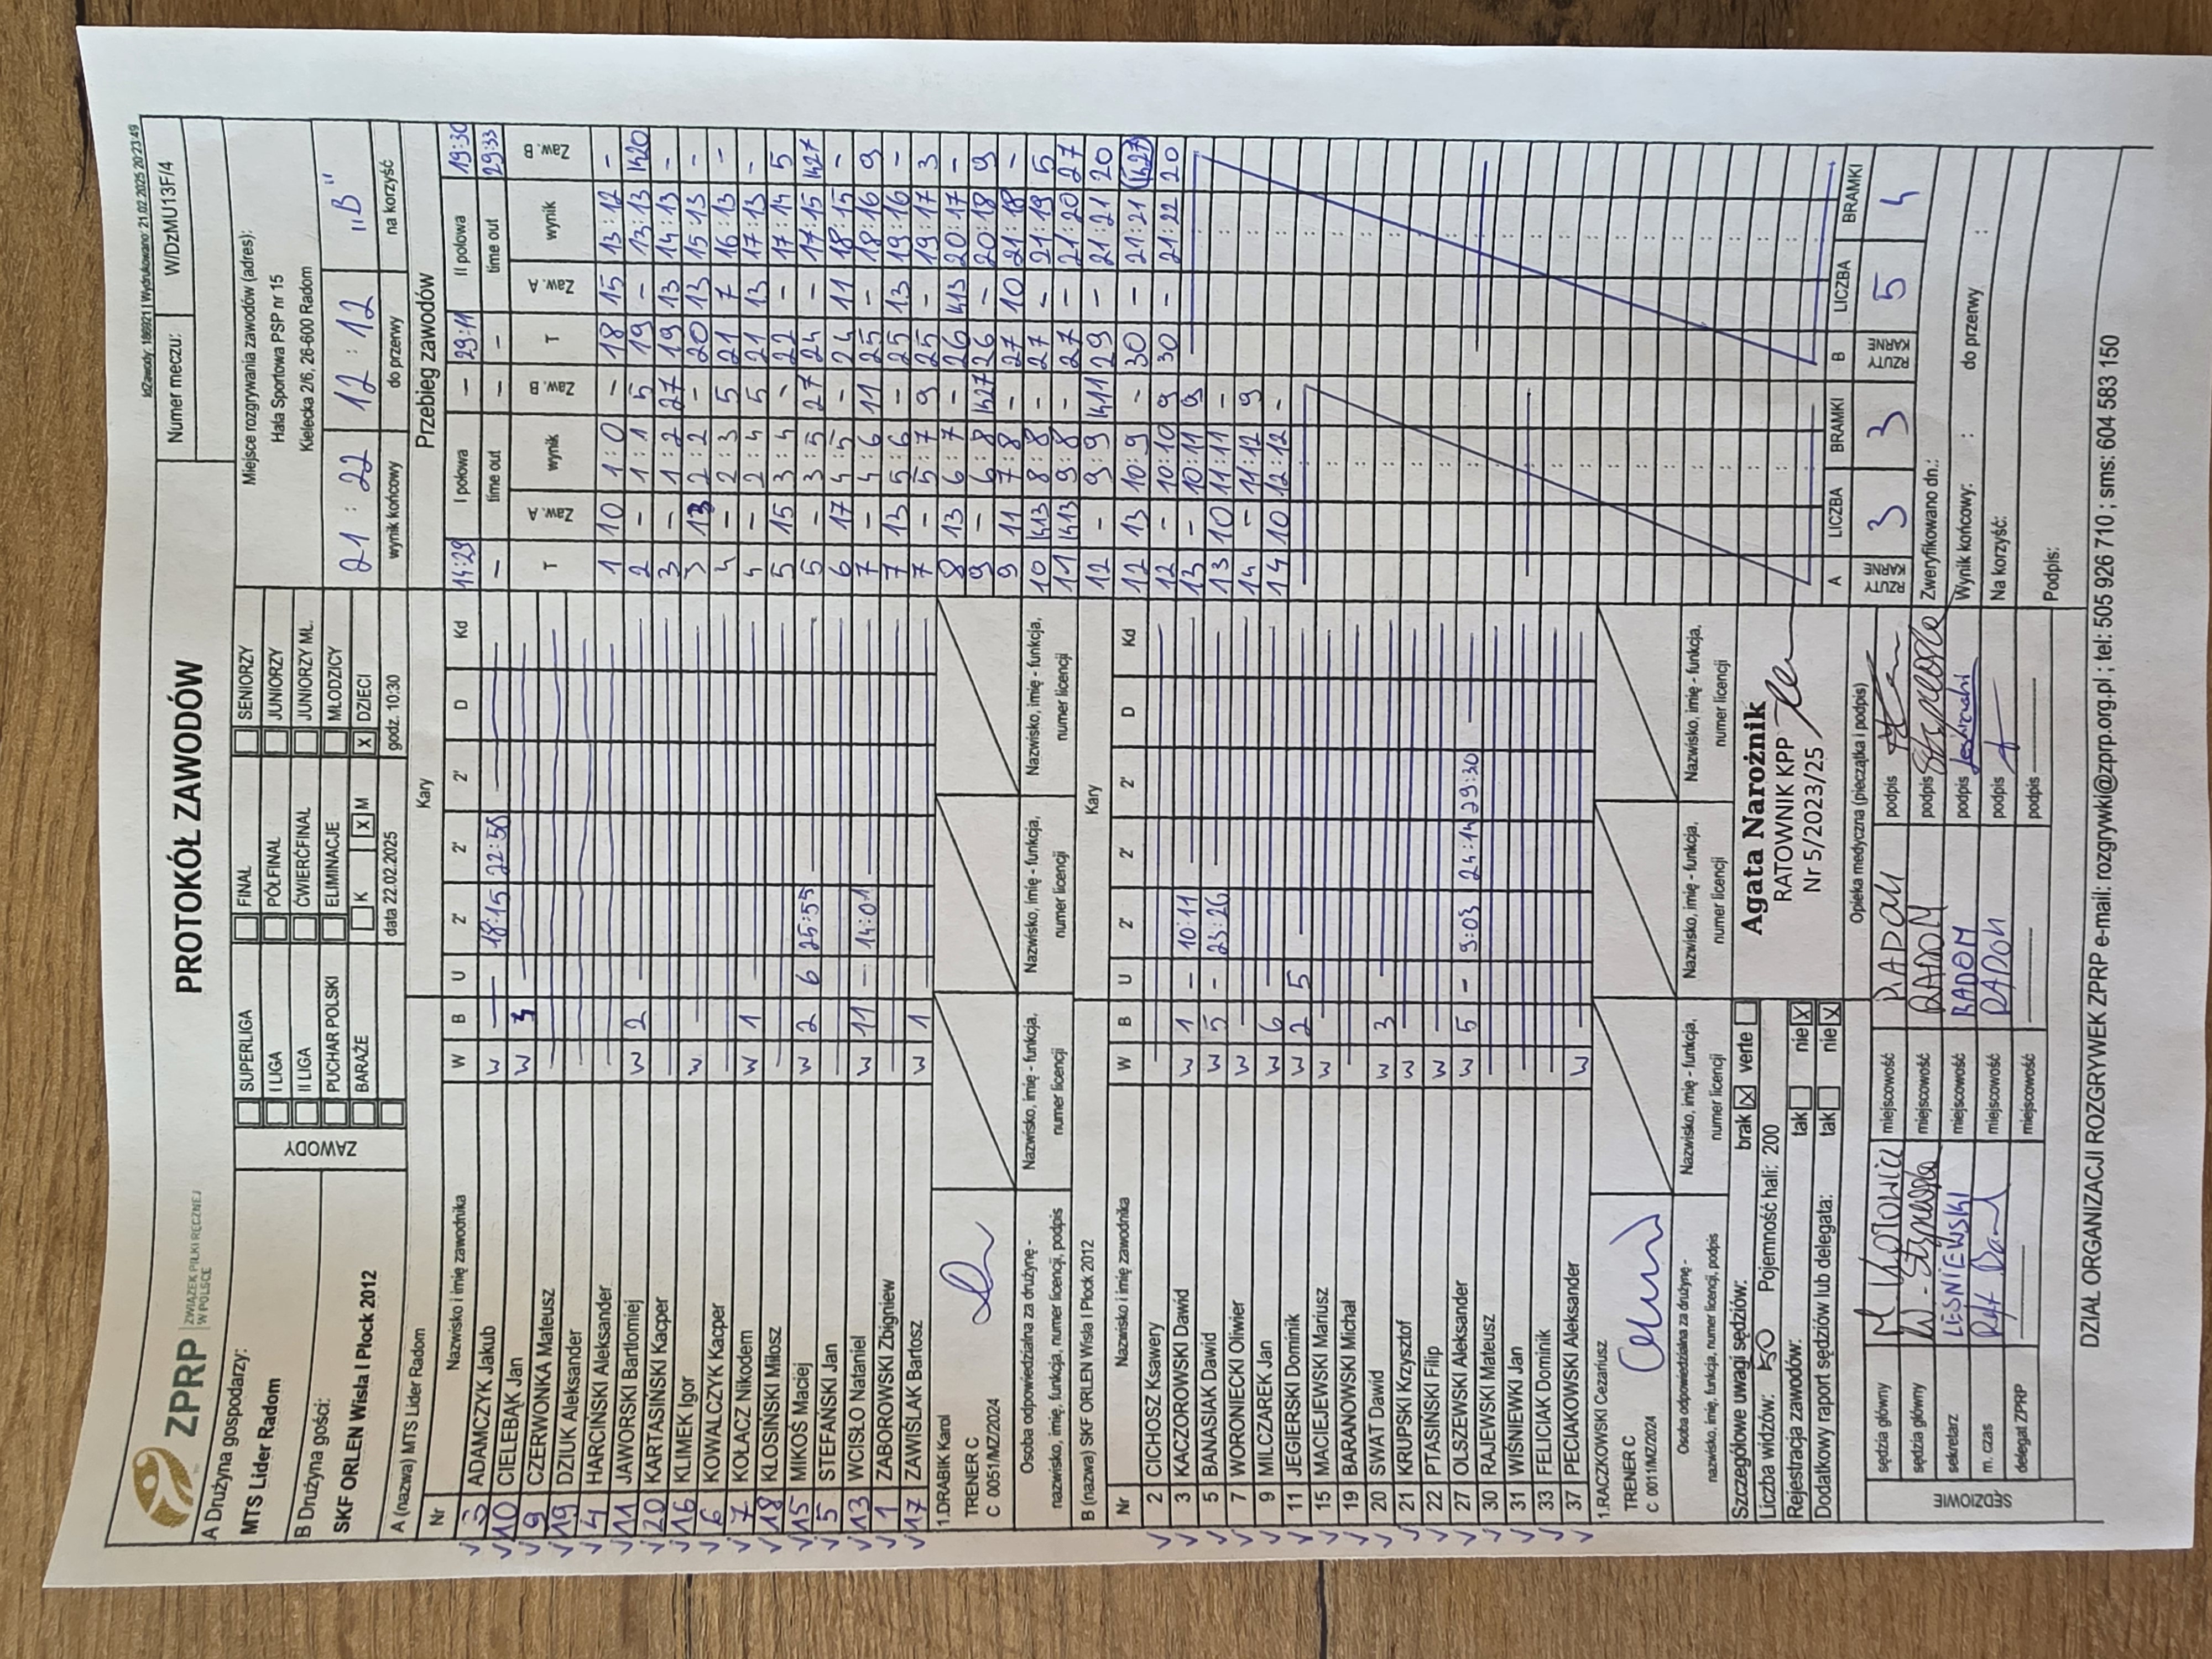 IdZawody: 186921 | Wydrukowano: 21.02.2025 20:23:49
ZPRP ZWIĄZEK PIŁKI RĘCZNEJ W POLSCE
PROTOKÓŁ ZAWODÓW
Numer meczu: W/DzMU13F/4
A Drużyna gospodarzy:
MTS Lider Radom
B Drużyna gości:
SKF ORLEN Wisła I Płock 2012
ZAWODY
SUPERLIGA FINAŁ SENIORZY
I LIGA PÓŁFINAŁ JUNIORZY
II LIGA ĆWIERĆFINAŁ JUNIORZY MŁ.
PUCHAR POLSKI ELIMINACJE MŁODZICY
BARAŻE K X M X DZIECI
data 22.02.2025 godz. 10:30
Miejsce rozgrywania zawodów (adres):
Hala Sportowa PSP nr 15
Kielecka 2/6, 26-600 Radom
21 : 22 12 : 12 "B"
wynik końcowy do przerwy na korzyść
A (nazwa) MTS Lider Radom Kary
Nr Nazwisko i imię zawodnika W B U 2' 2' 2' D Kd
3 ADAMCZYK Jakub W 18:15 22:50
10 CIELEBĄK Jan W 3
9 CZERWONKA Mateusz
19 DZIUK Aleksander
4 HARCIŃSKI Aleksander
11 JAWORSKI Bartłomiej W 2
20 KARTASIŃSKI Kacper
16 KLIMEK Igor W
6 KOWALCZYK Kacper
7 KOŁACZ Nikodem W 1
18 KŁOSIŃSKI Miłosz
15 MIKOŚ Maciej W 2 6 25:55
5 STEFAŃSKI Jan
13 WCISŁO Nataniel W 11 - 14:01
1 ZABOROWSKI Zbigniew
17 ZAWIŚLAK Bartosz W 1
1.DRABIK Karol
TRENER C
C 0051/MZ/2024
Osoba odpowiedzialna za drużynę -
nazwisko, imię, funkcja, numer licencji, podpis
Nazwisko, imię - funkcja, numer licencji
Nazwisko, imię - funkcja, numer licencji
Nazwisko, imię - funkcja, numer licencji
B (nazwa) SKF ORLEN Wisła I Płock 2012 Kary
Nr Nazwisko i imię zawodnika W B U 2' 2' 2' D Kd
2 CICHOSZ Ksawery
3 KACZOROWSKI Dawid W 1 - 10:11
5 BANASIAK Dawid W 5 - 23:26
7 WORONIECKI Oliwier W
9 MILCZAREK Jan W 6
11 JEGIERSKI Dominik W 2 5
15 MACIEJEWSKI Mariusz W
19 BARANOWSKI Michał
20 SWAT Dawid W 3
21 KRUPSKI Krzysztof W
22 PTASIŃSKI Filip W
27 OLSZEWSKI Aleksander W 5 - 9:03 24:14 29:30
30 RAJEWSKI Mateusz
31 WIŚNIEWKI Jan
33 FELICIAK Dominik
37 PECIAKOWSKI Aleksander W
1.RACZKOWSKI Cezariusz
TRENER C
C 0011/MZ/2024
Osoba odpowiedzialna za drużynę -
nazwisko, imię, funkcja, numer licencji, podpis
Nazwisko, imię - funkcja, numer licencji
Nazwisko, imię - funkcja, numer licencji
Nazwisko, imię - funkcja, numer licencji
Przebieg zawodów
14:29 I połowa - 29:11 II połowa 19:30
- time out - - time out 29:33
T Zaw. A wynik Zaw. B T Zaw. A wynik Zaw. B
1 10 1:0 - 18 15 13:12 -
2 - 1:1 5 19 - 13:13 k20
3 - 1:2 27 19 13 14:13 -
3 13 2:2 - 20 13 15:13 -
4 - 2:3 5 21 7 16:13 -
4 - 2:4 5 21 13 17:13 -
5 15 3:4 - 22 - 17:14 5
5 - 3:5 27 24 - 17:15 k27
6 17 4:5 - 24 11 18:15 -
7 - 4:6 11 25 - 18:16 9
7 13 5:6 - 25 13 19:16 -
7 - 5:7 9 25 - 19:17 3
8 13 6:7 - 26 k13 20:17 -
9 - 6:8 k27 26 - 20:18 9
9 11 7:8 - 27 10 21:18 -
10 k13 8:8 - 27 - 21:19 5
11 k13 9:8 - 27 - 21:20 27
12 - 9:9 k11 29 - 21:21 20
12 13 10:9 - 30 - 21:21 k27
12 - 10:10 9 30 - 21:22 20
13 - 10:11 9
13 10 11:11 -
14 - 11:12 9
14 10 12:12 -
A LICZBA BRAMKI B LICZBA BRAMKI
RZUTY KARNE 3 3 RZUTY KARNE 5 4
Szczegółowe uwagi sędziów: brak X verte
Liczba widzów: 50 Pojemność hali: 200
Rejestracja zawodów: tak nie X
Dodatkowy raport sędziów lub delegata: tak nie X
Agata Narożnik
RATOWNIK KPP
Nr 5/2023/25
Opieka medyczna (pieczątka i podpis)
SĘDZIOWIE
sędzia główny miejscowość RADOM podpis
sędzia główny miejscowość RADOM podpis
sekretarz LEŚNIEWSKI miejscowość RADOM podpis Leśniewski
m. czas miejscowość RADOM podpis
delegat ZPRP miejscowość podpis
Zweryfikowano dn.:
Wynik końcowy: : do przerwy :
Na korzyść:
Podpis:
DZIAŁ ORGANIZACJI ROZGRYWEK ZPRP e-mail: rozgrywki@zprp.org.pl ; tel: 505 926 710 ; sms: 604 583 150